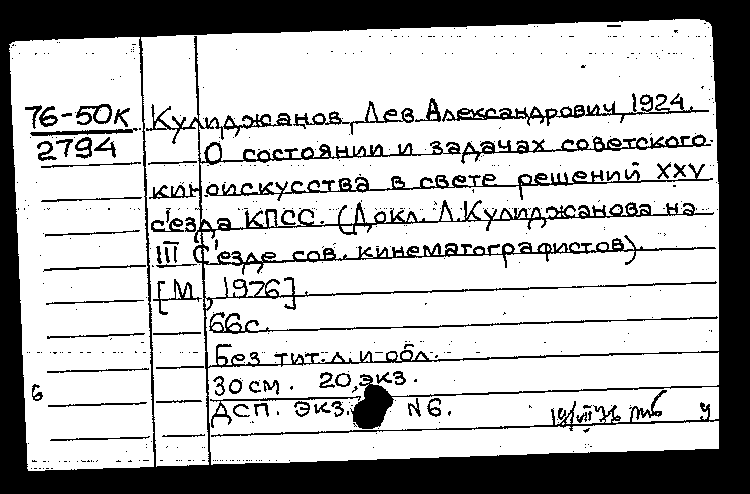 76-50к Кулиджанов, Лев Александрович, 1924.
2794 О состоянии и задачах советского
киноискусства в свете решений XXV
с'езда КПСС. (Докл. Л.Кулиджанова на
III С'езде сов. кинематографистов).
[М., 1976].
66с.
Без тит.л. и обл.
6 30см. 20 экз.
ДСП. экз. N6.